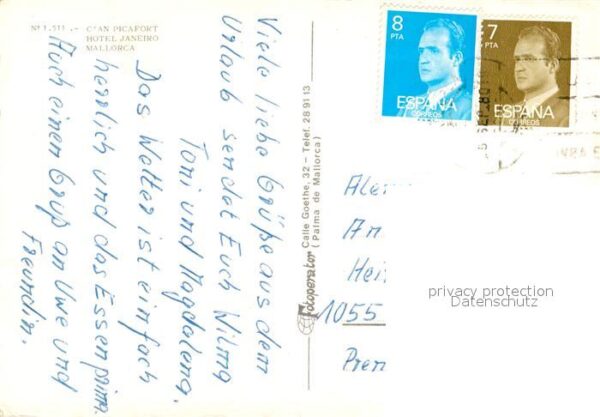 Nº 1.511 .- C'AN PICAFORT
HOTEL JANEIRO
MALLORCA
Viele liebe Grüße aus dem
Urlaub sendet Euch Wilma
Toni und Magdalena.
Das Wetter ist einfach
herrlich und das Essen prima.
Auch einen Gruß an Uwe und
Freundin.
Fotoperator Calle Goethe, 32 - Telef. 28 91 13
(Palma de Mallorca)
8
PTA
ESPAÑA
CORREOS
7
PTA
ESPAÑA
CORREOS
1055
privacy protection
Datenschutz